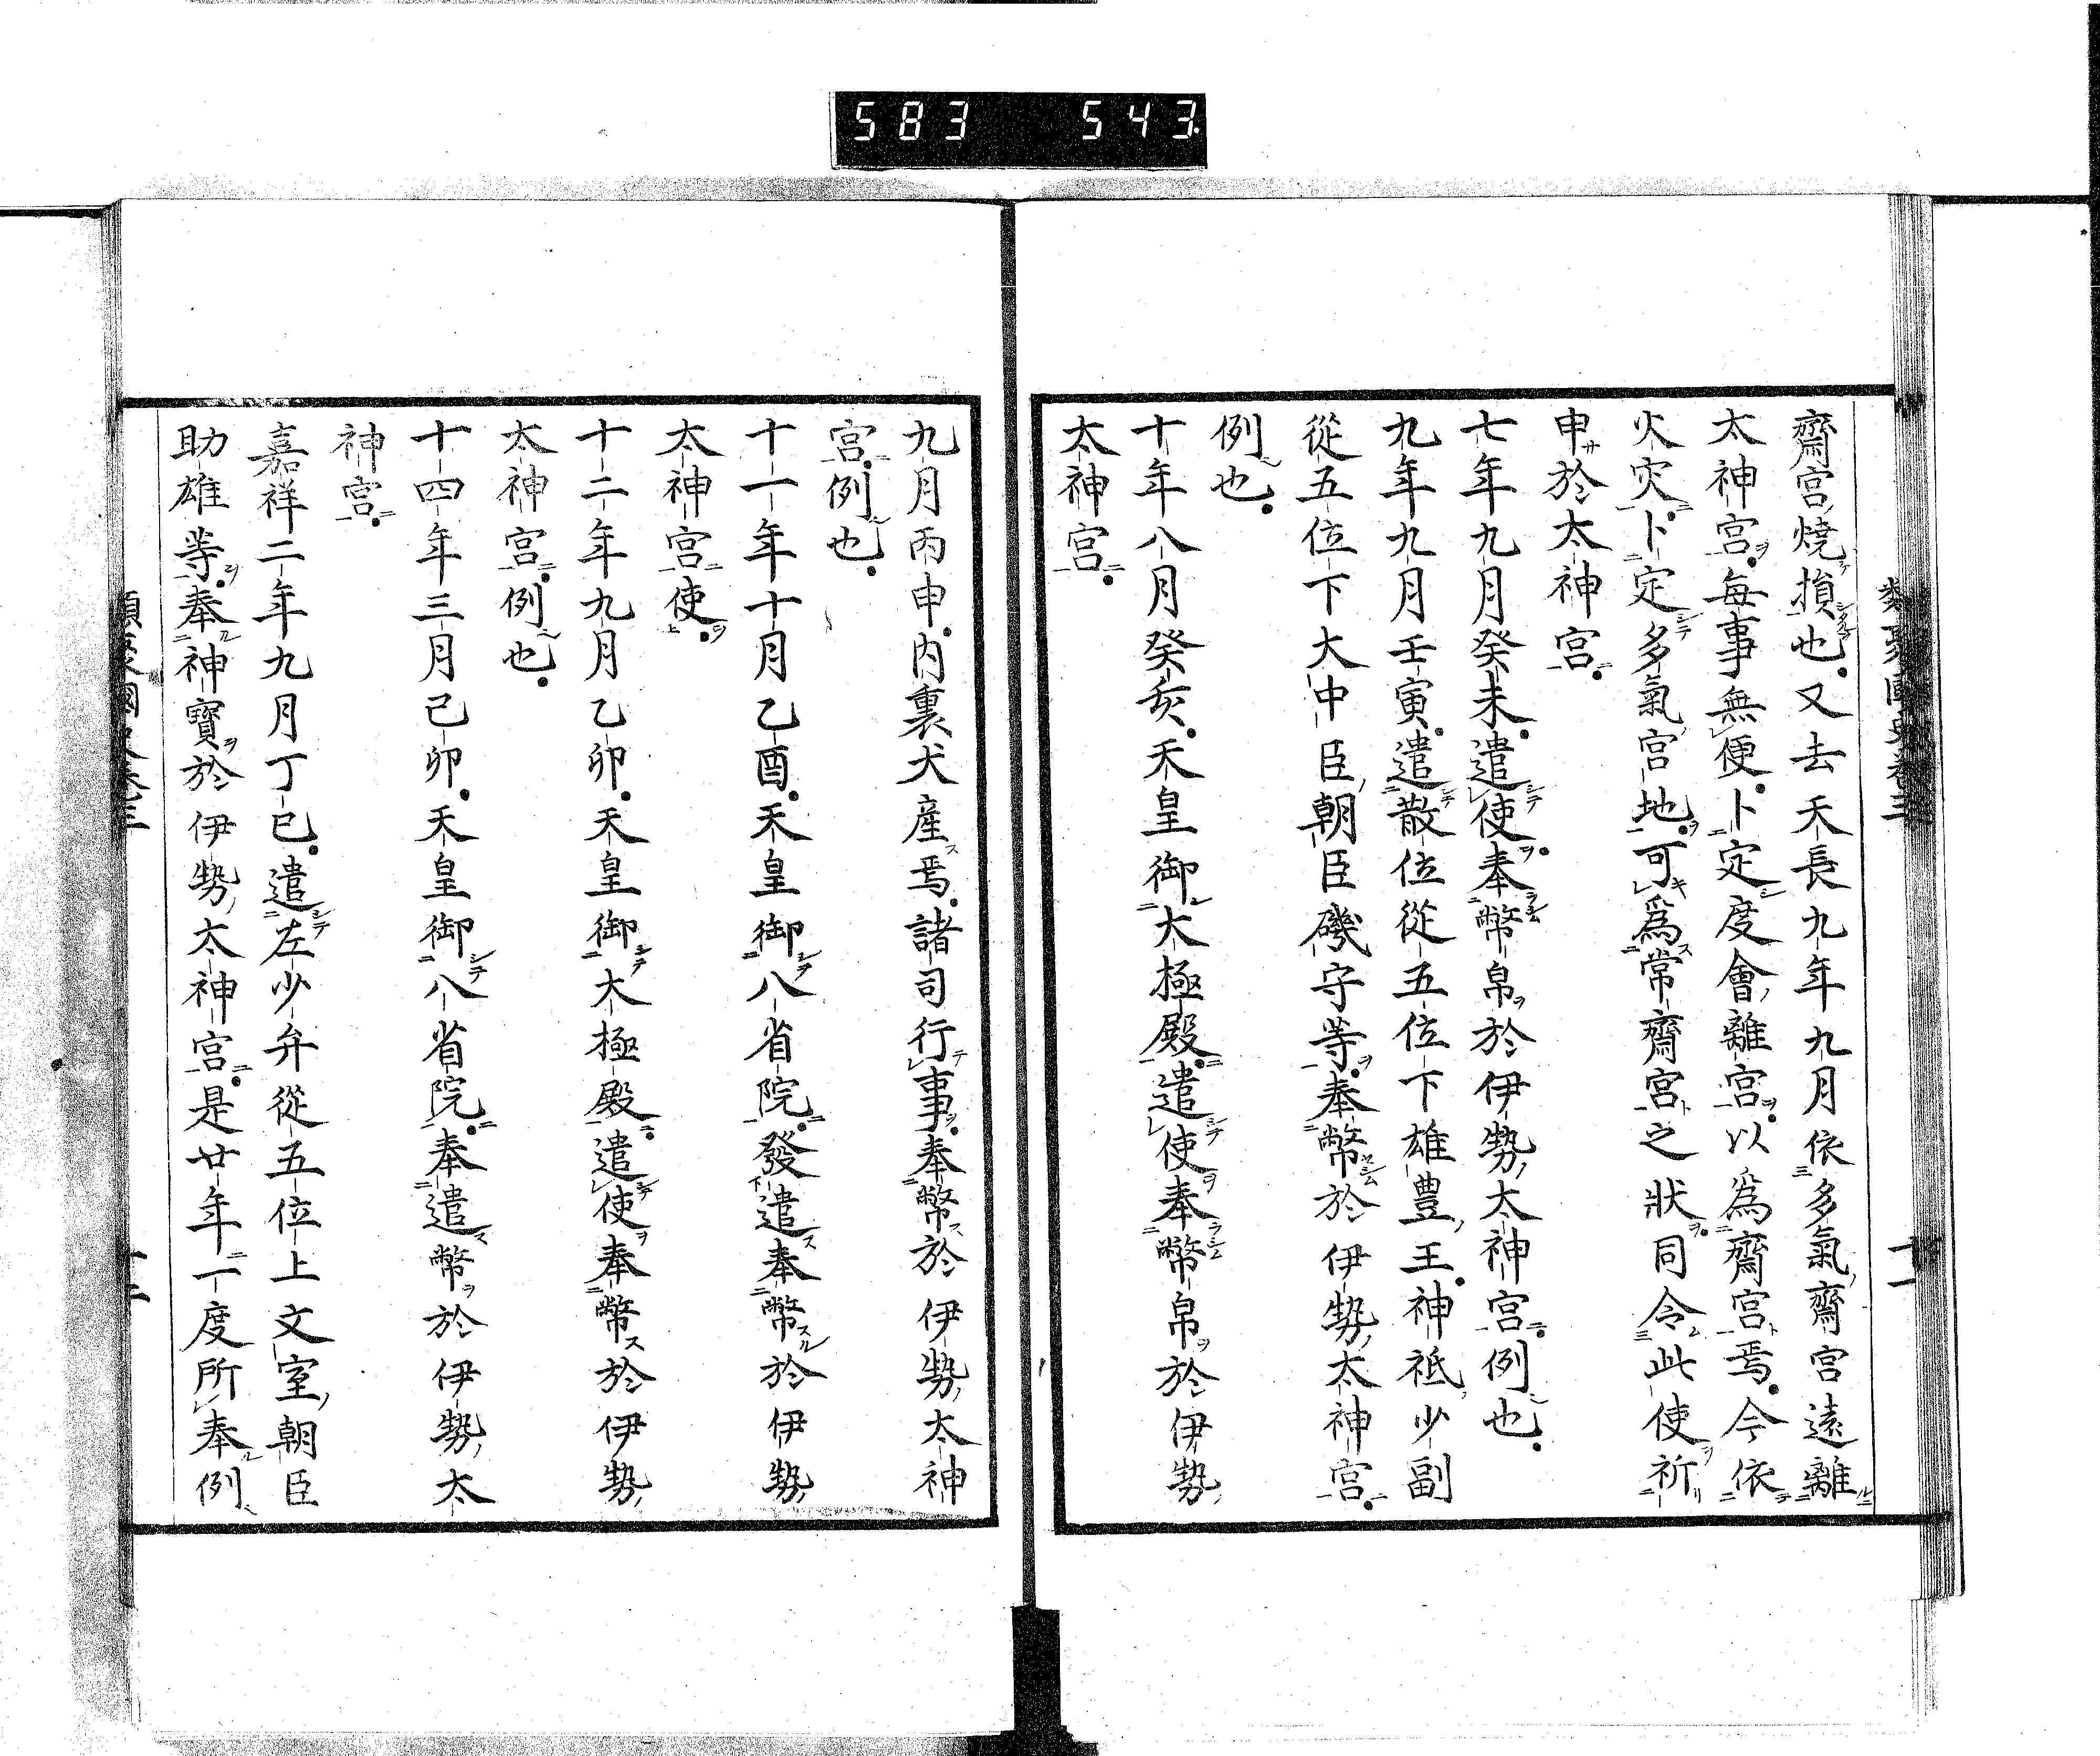 583 543
類聚國史卷三 十一
齋宮燒損也又去天長九年九月依多氣齋宮遠離
太神宮每事無便卜定度會離宮以爲齋宮焉今依
火灾卜定多氣宮地可爲常齋宮之狀同令此使祈
申於太神宮
七年九月癸未遣使奉幣帛於伊勢太神宮例也
九年九月壬寅遣散位從五位下雄豊王神祇少副
從五位下大中臣朝臣磯守等奉幣於伊勢太神宮
例也
十年八月癸亥天皇御大極殿遣使奉幣帛於伊勢
太神宮
九月丙申內裏犬産焉諸司行事奉幣於伊勢太神
宮例也
十一年十月乙酉天皇御八省院發遣奉幣於伊勢
太神宮使
十二年九月乙卯天皇御大極殿遣使奉幣於伊勢
太神宮例也
十四年三月己卯天皇御八省院奉遣幣於伊勢太
神宮
嘉祥二年九月丁巳遣左少弁從五位上文室朝臣
助雄等奉神寶於伊勢太神宮是廿年一度所奉例
類聚國史卷三 十二